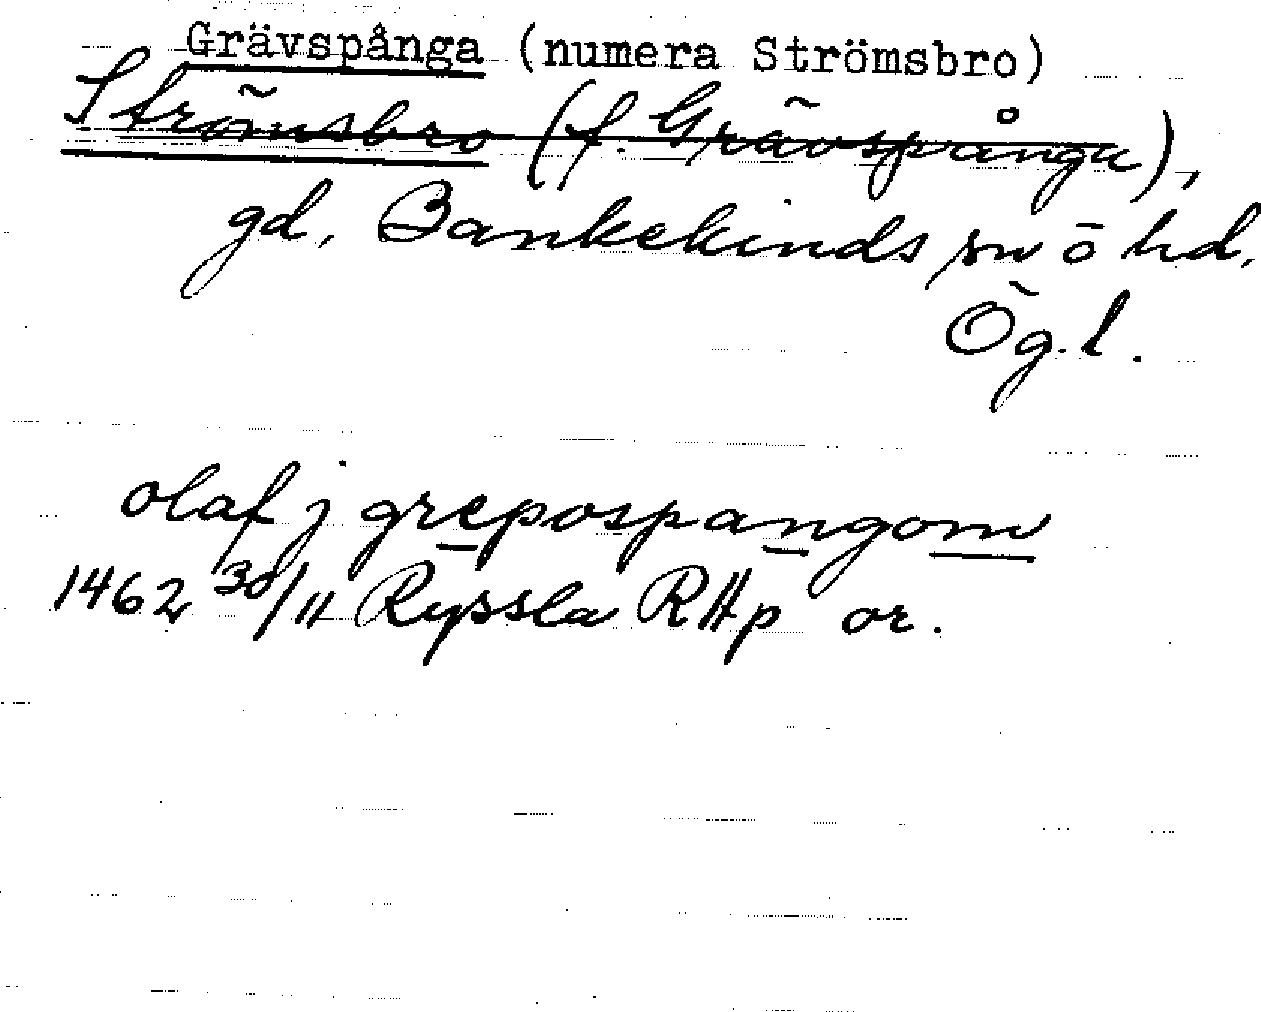 Grävspånga (numera Strömsbro)
Strömsbro (f. Grävspånga),
gd, Bankekinds sn ö hd,
Ög.l.
olaf j grepospangom
1462 30/11 Ryssla RAp or.